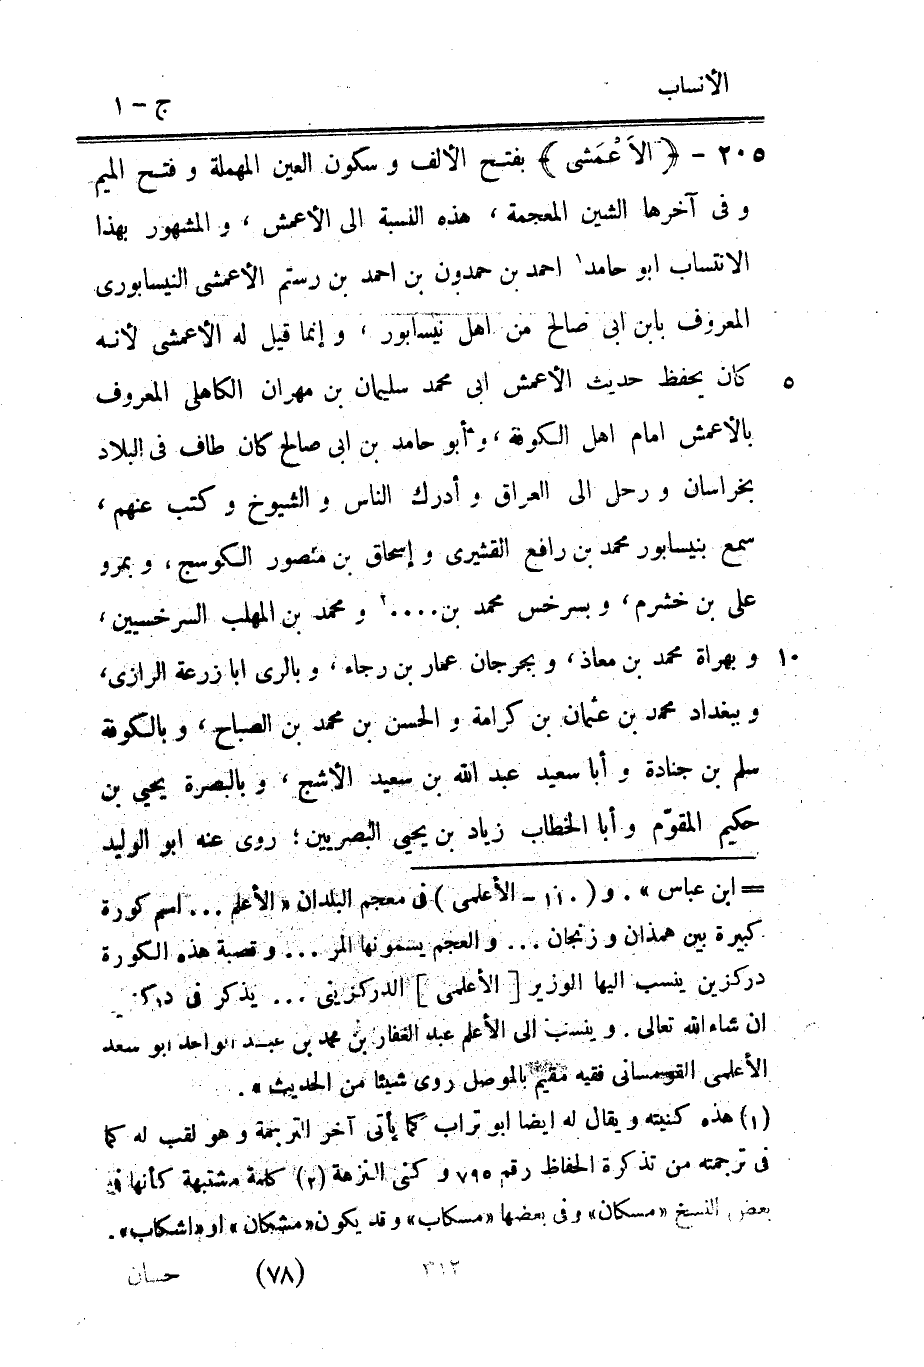 الأنساب
ج - ١
٢٠٥ - ﴿ الأَعْمَشى ﴾ بفتح الألف و سكون العين المهملة و فتح الميم
و فى آخرها الشين المعجمة ، هذه النسبة الى الأعمش ، و المشهور بهذا
الانتساب ابو حامد١ احمد بن حمدون بن احمد بن رستم الأعمشى النيسابورى
المعروف بابن ابى صالح من اهل نيسابور ، و إنما قيل له الأعمشى لأنه
كان يحفظ حديث الأعمش ابى محمد سليمان بن مهران الكاهلى المعروف ٥
بالأعمش امام اهل الكوفة ، و أبو حامد بن ابى صالح كان طاف فى البلاد
بخراسان و رحل الى العراق و أدرك الناس و الشيوخ و كتب عنهم ،
سمع بنيسابور محمد بن رافع القشيرى و إسحاق بن منصور الكوسج ، و بمرو
على بن خشرم ، و بسرخس محمد بن ....٢ و محمد بن المهلب السرخسيين ،
و بهراة محمد بن معاذ ، و بجرجان عمار بن رجاء ، و بالرى ابا زرعة الرازى ، ١٠
و ببغداد محمد بن عثمان بن كرامة و الحسن بن محمد بن الصباح ، و بالكوفة
سلم بن جنادة و أبا سعيد عبد الله بن سعيد الأشج ، و بالبصرة يحيى بن
حكيم المقوّم و أبا الخطاب زياد بن يحيى البصريين ؛ روى عنه ابو الوليد
= ابن عباس » . و ( ١١٠ - الأعلمى ) فى معجم البلدان « الأعلم ... اسم كورة
كبيرة بين همذان و زنجان ... و العجم يسمونها المر ... و قصبة هذه الكورة
دركزين ينسب اليها الوزير [ الأعلمى ] الدركزينى ... يذكر فى
ان شاء الله تعالى . و ينسب الى الأعلم عبد الغفار بن محمد بن عبد الواحد ابو سعد
الأعلمى القومسانى فقيه مقيم بالموصل روى شيئا من الحديث » .
(١) هذه كنيته و يقال له ايضا ابو تراب كما يأتى آخر الترجمة و هو لقب له كما
فى ترجمته من تذكرة الحفاظ رقم ٧٩٥ و كنى النزهة (٢) كلمة مشتبهة كأنها فى
بعض النسخ « مسكان » و فى بعضها « مسكاب » و قد يكون « مشكان » او « اشكاب » .
٣١٢
(٧٨)
حسان